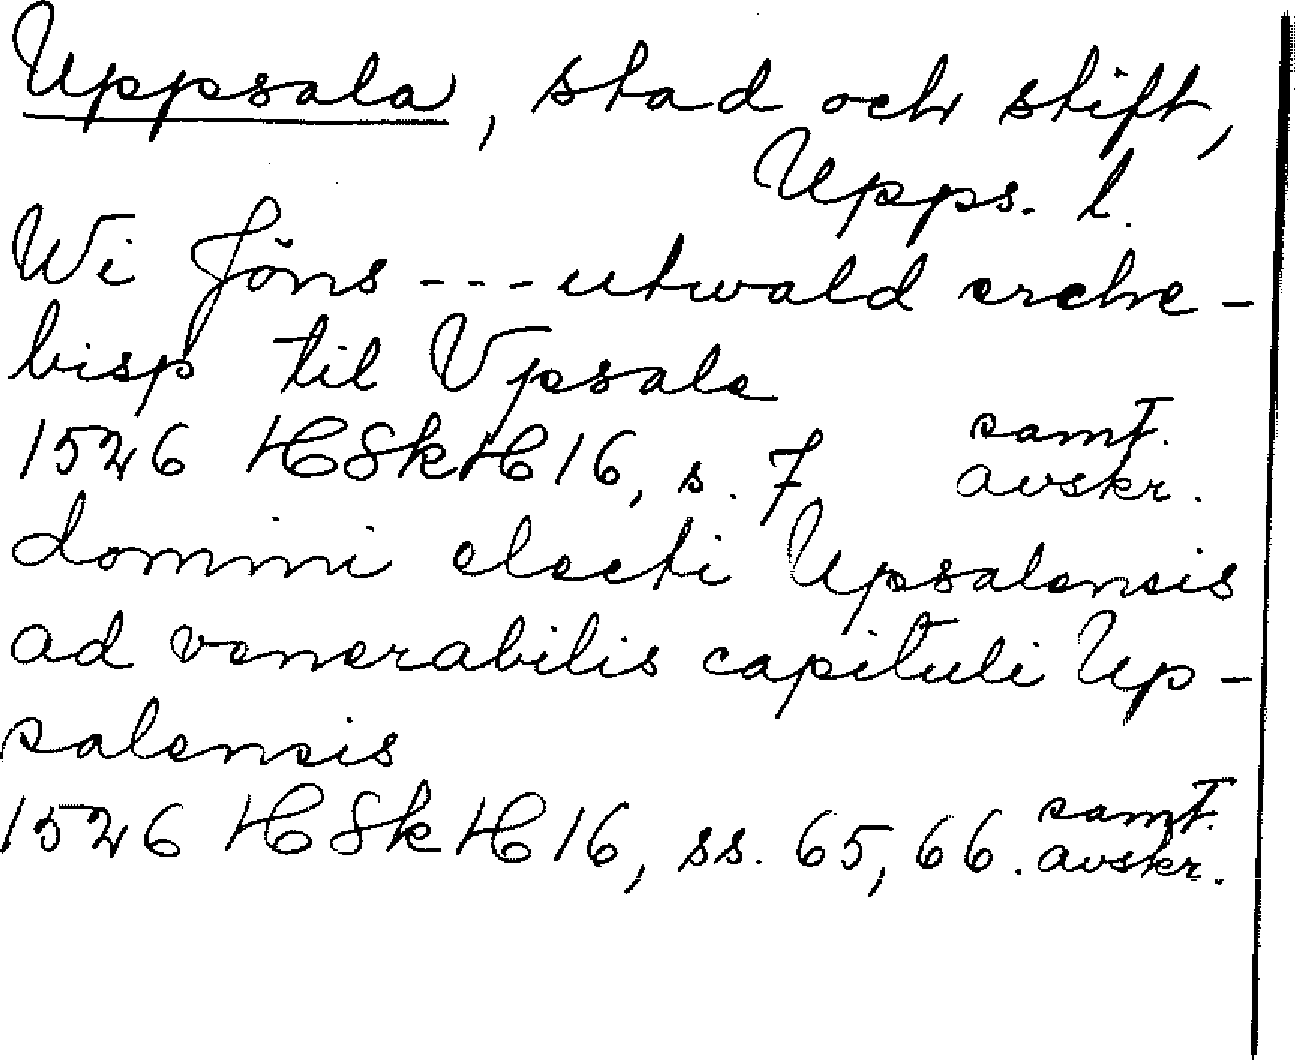 Uppsala, stad och stift,
Upps. l.
Wi Jöns --- utwald erche-
bisp til Vpsale
1526 HSkH16, s. 7 samt. avskr.
domini electi Upsalensis
ad venerabilis capituli Up-
salensis
1526 HSkH16, ss. 65, 66. samt. avskr.